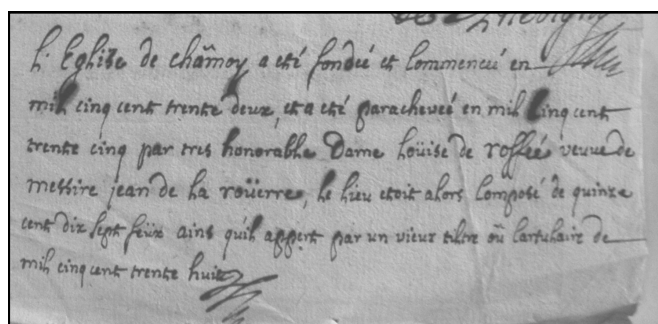 L'Eglise de chãmoy a eté fondeé et Commenceé en
mil cinq cent trente deux, et a eté paracheveé en mil Cinq cent
trente cinq par tres honorable Dame Loüise de roffeé veuve de
messire jean de la roüerre, le lieu etoit alors Composé de quinze
cent dix sept feüx ains qu'il appert par un vieux tiltre oû Cartulaire de
mil cinq cent trente huit